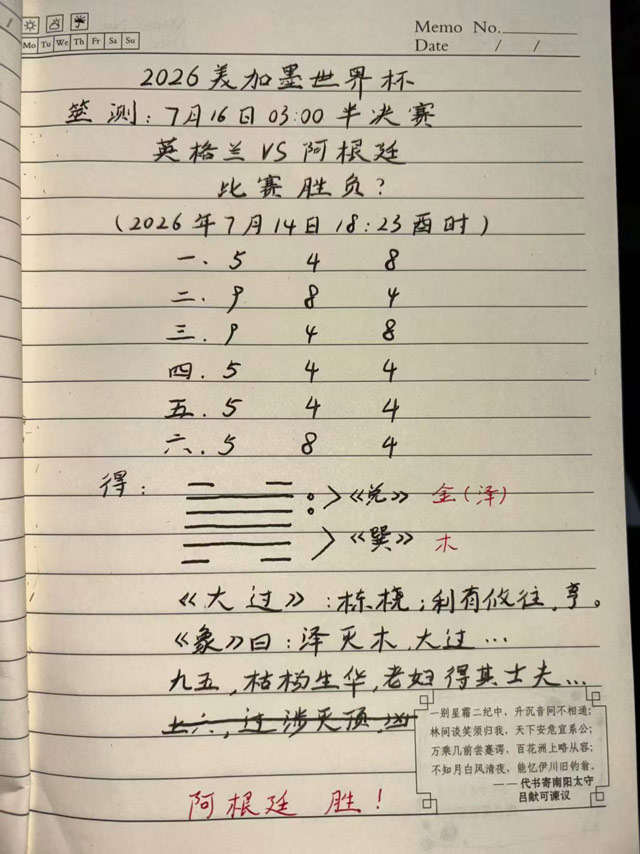 Memo No.
Mo Tu We Th Fr Sa Su
Date / /
2026美加墨世界杯
筮测：7月16日03:00半决赛
英格兰VS阿根廷
比赛胜负？
（2026年7月14日18:23酉时）
一．5 4 8
二．9 8 4
三．9 4 8
四．5 4 4
五．5 4 4
六．5 8 4
得：
《兑》 金（泽）
《巽》 木
《大过》：栋桡；利有攸往，亨。
《象》曰：泽灭木，大过…
九五，枯杨生华，老妇得其士夫…
上六，过涉灭顶，凶
一别星霜二纪中，升沉音问不相通；
林间谈笑须归我，天下安危宜系公；
万乘几前尝蹇谔，百花洲上略从容；
不知月白风清夜，能忆伊川旧钓翁。
——代书寄南阳太守
吕献可谏议
阿根廷 胜！